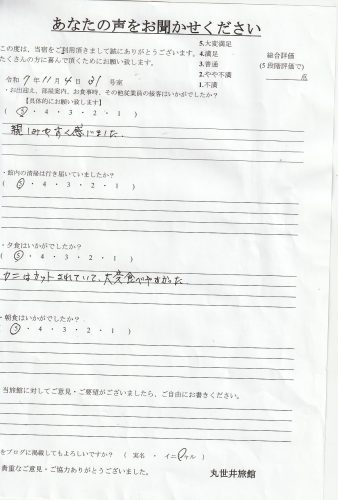 あなたの声をお聞かせください
この度は、当宿をご利用頂きまして誠にありがとうございます。
たくさんの方に喜んで頂くためにお願い致します。
5.大変満足
4.満足
3.普通
2.やや不満
1.不満
総合評価
(5段階評価で)
点
令和 7 年 11 月 4 日 31 号室
・お出迎え、部屋案内、お食事時、その他従業員の接客はいかがでしたか?
【具体的にお願い致します】
( 5 ・ 4 ・ 3 ・ 2 ・ 1 )
親しみやすく感じました。
・館内の清掃は行き届いていましたか?
( 5 ・ 4 ・ 3 ・ 2 ・ 1 )
・夕食はいかがでしたか?
( 5 ・ 4 ・ 3 ・ 2 ・ 1 )
カニはカットされていて、大変食べやすかった。
・朝食はいかがでしたか?
( 5 ・ 4 ・ 3 ・ 2 ・ 1 )
・当旅館に対してご意見・ご要望がございましたら、ご自由にお書きください。
をブログに掲載してもよろしいですか? ( 実名 ・ イニシャル )
貴重なご意見・ご協力ありがとうございました。
丸世井旅館